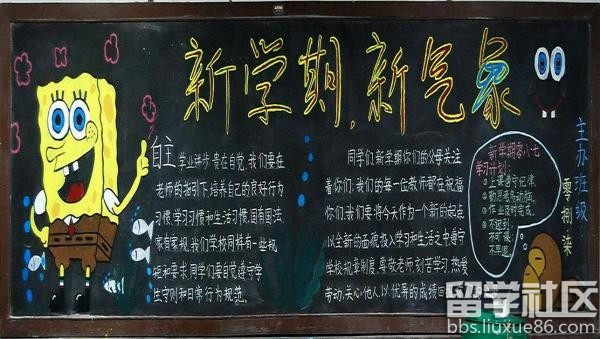 新学期,新气象
自主
学业进步贵在自觉,我们要在
老师的指引下,培养自己的良好行为
习惯,学习习惯和生活习惯,国有国法,
家有家规,我们学校同样有一些规
矩和要求,同学们要自觉遵守学
生守则和日常行为规范。
同学们,新学期你们的父母关注
着你们;我们的每一位教师都在祝福
你们,我们要将今天作为一个新的起点
以全新的面貌投入学习和生活之中遵守
学校规章制度,尊敬老师,刻苦学习,热爱
劳动,关心他人,以优异的成绩回
新学期零八七
学习计划:
上课遵守纪律。
勤思考多动脑。
作业按时完成。
不迟到,
不早退。
主办班级
零捌柒
留学社区
bbs.liuxue86.com